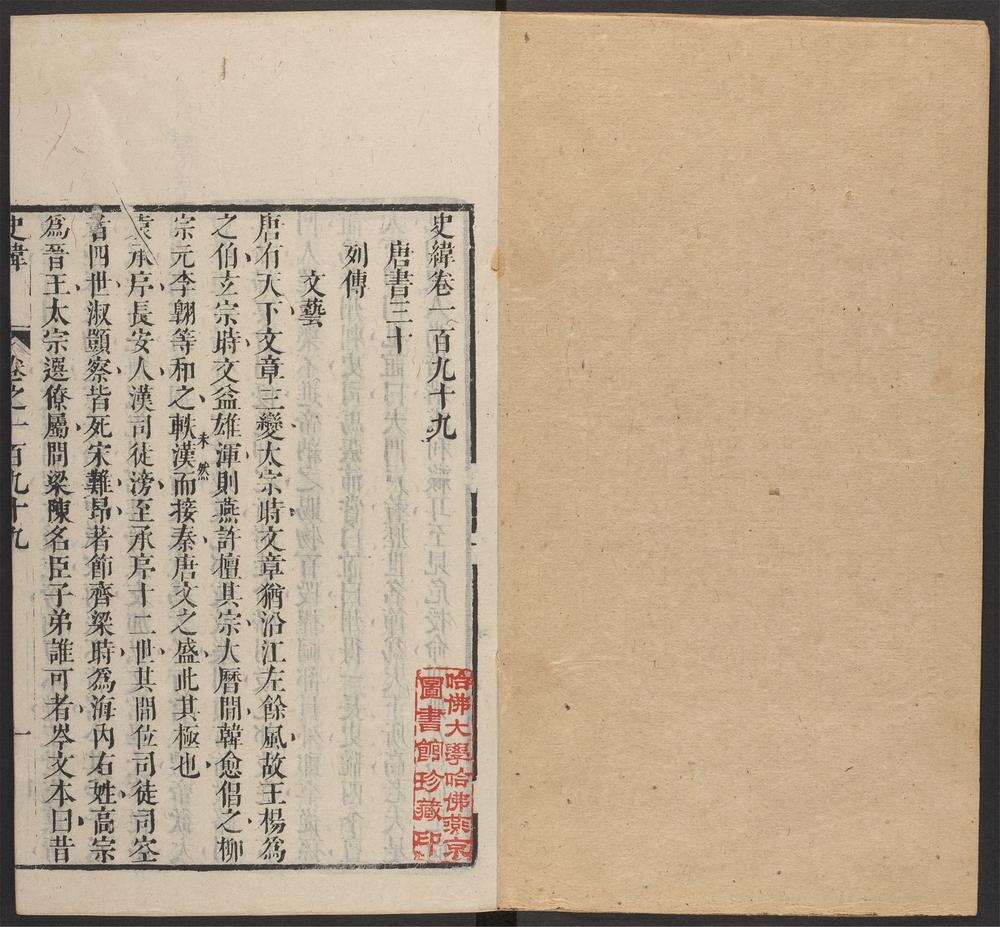 史緯卷一百九十九
唐書三十
列傳
文藝
唐有天下文章三變太宗時文章猶沿江左餘風故王楊爲
之伯玄宗時文益雄渾則燕許擅其宗大曆間韓愈倡之柳
宗元李翶等和之軼漢而接秦唐文之盛此其極也
未然
袁承序長安人漢司徒滂至承序十二世其間位司徒司空
者四世淑顗察皆死宋難昂著節齊梁時爲海內右姓高宗
爲晉王太宗選僚屬問梁陳名臣子弟誰可者岑文本曰昔
史緯
卷之一百九十九
一
哈佛大學哈佛燕京
圖書館珍藏印